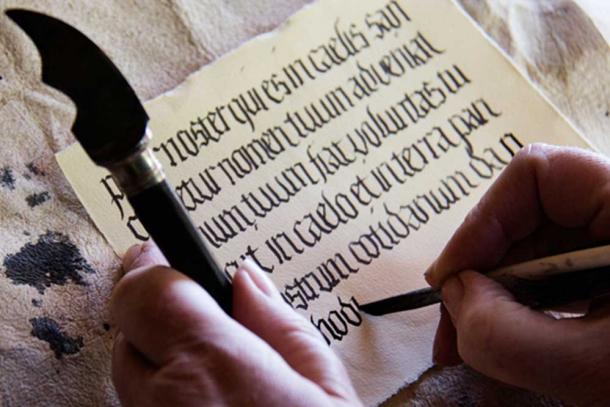 noster qui es in caelis san
nomen tuum adveniat
tuum fiat voluntas tu
in caelo et in terra pan
cotidianum da n
hodi